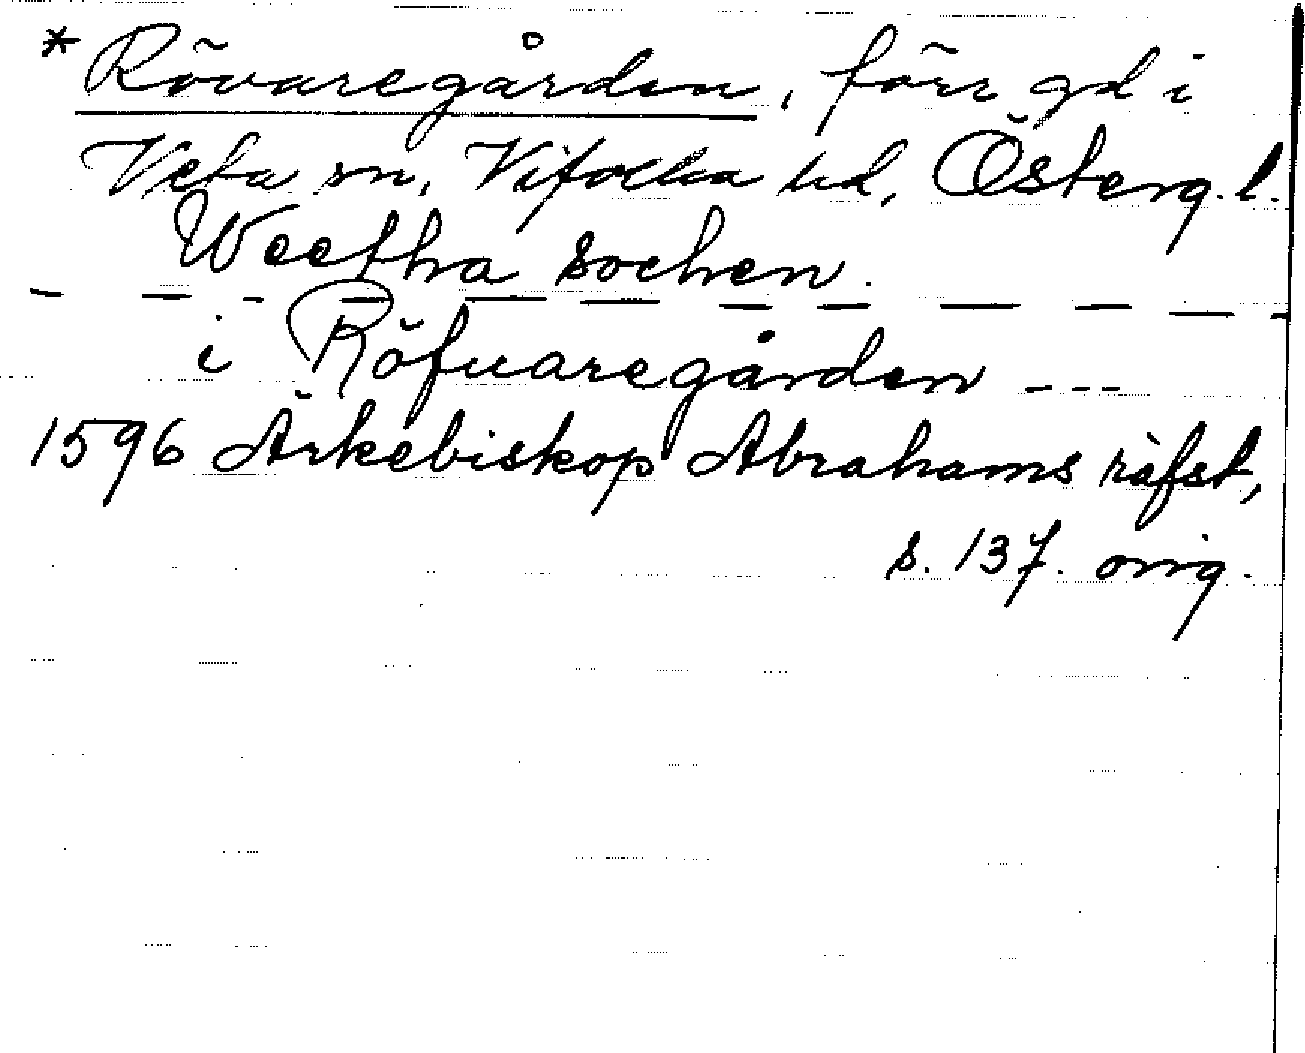 * Rövaregården, förr gd i
Veta sn, Vifolka hd, Österg. l.
Weetha sochen.
i Röfuaregården ---
1596 Ärkebiskop Abrahams räfst,
s. 137. orig.